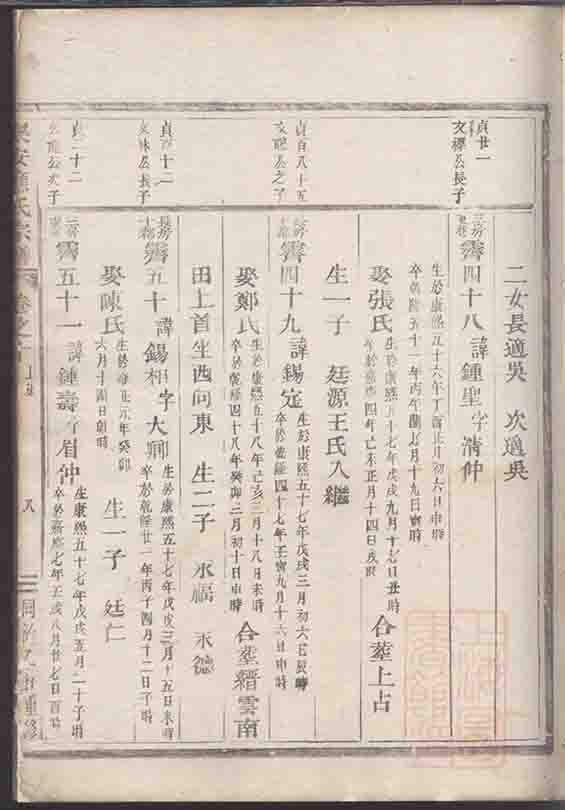 二女長適吳 次適吳
貞廿一
文標公長子
霽四十八 諱鍾聖 字清仲
生於康熙五十六年丁酉正月初六日申時
卒於乾隆五十一年丙午閏七月十九日寅時
娶張氏
生於康熙五十七年戊戌九月十七日丑時
卒於嘉慶四年己未正月十四日戌時
合葬上占
生一子 廷源王氏入繼
貞百八十五
文聰公之子
霽四十九 諱錫定
生於康熙五十七年戊戌三月初六日辰時
卒於乾隆四十七年壬寅九月十六日申時
娶鄭氏
生於康熙五十八年己亥三月十八日未時
卒於乾隆四十八年癸卯二月初十日申時
合塟縉雲南
田上首坐西向東 生二子 永福 永德
公長子
霽五十 諱錫相 字大卿
生於康熙五十七年戊戌三月十五日未時
卒於乾隆廿一年丙子四月十二日子時
娶陳氏
生於雍正元年癸卯
六月十四日卯時
生一子 廷仁
二十二
公次子
霽五十一 諱鍾壽 字眉仲
生康熙五十七年戊戌五月二十子時
卒於嘉慶七年壬戌八月廿七日酉時
氏宗譜 卷之
八
同治 重修